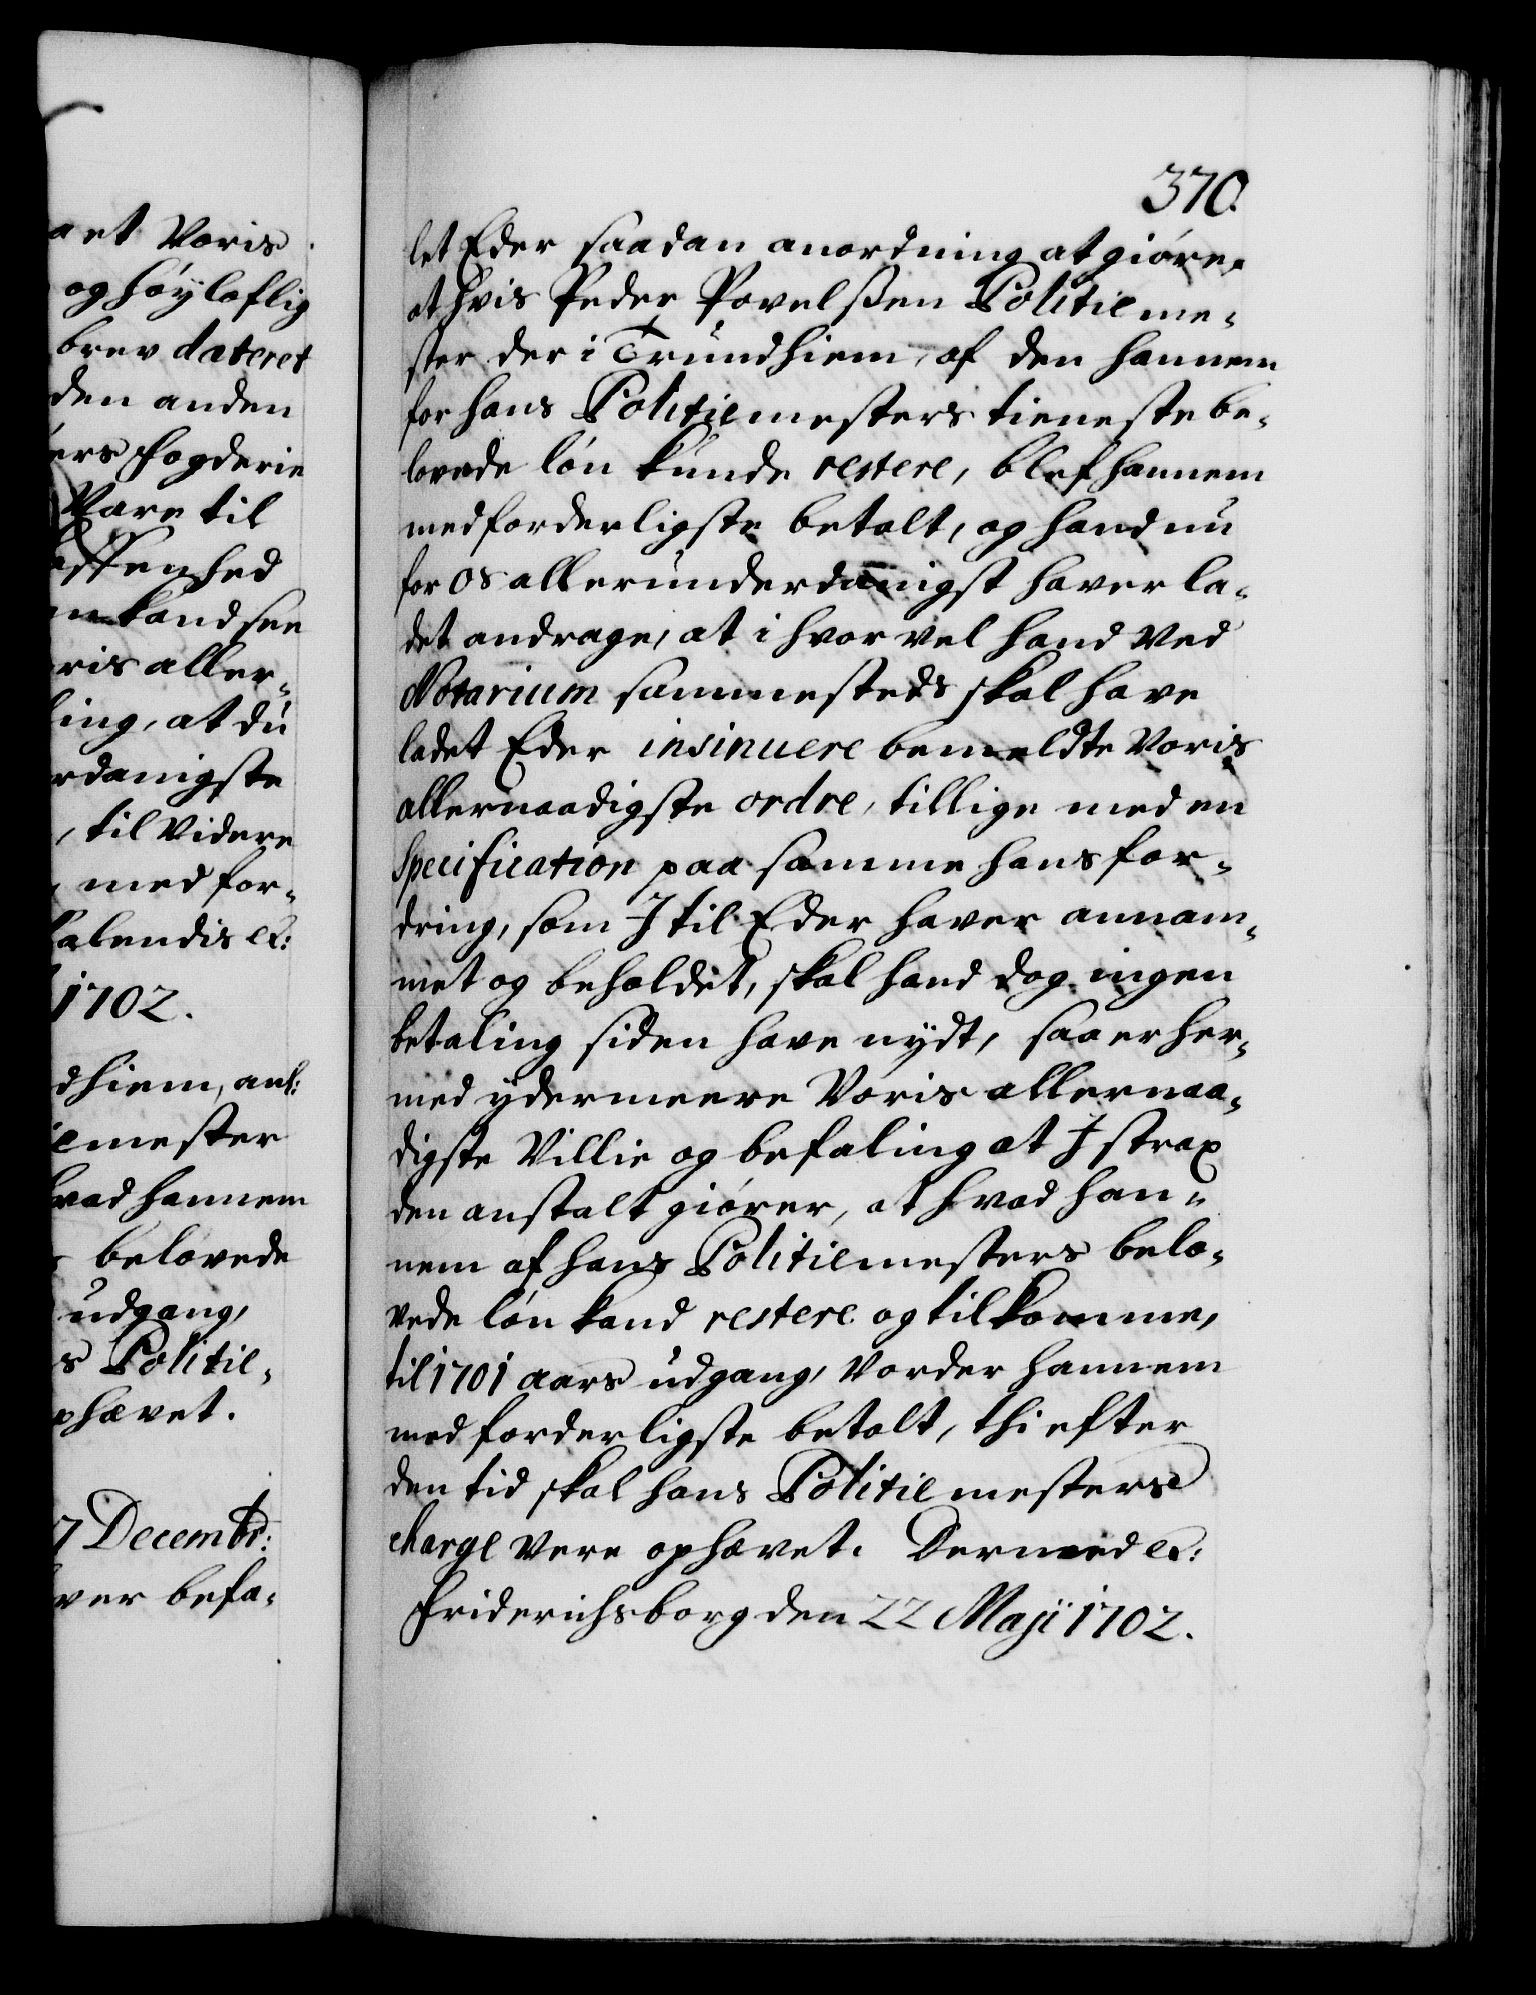 aet Voris
og høyloflig
brev dateret
den anden
ers Fogderie
Vare til
affenhed
n kand see
ris aller¬
ling, at du
rdanigste
, til Videre
, med for¬
Calendis etc:
1702.
dhiem, anl:
iemester
hvad hannem
s belovede
udgang,
s Politie¬
phævet.
7 Decembr:
ver befa¬
370.
let Eder saadan anordning at giøre,
at hvis Peder Povelßen Politieme¬
ster der i Trundhiem, af den hannem
for hans Politiemesters tieneste be¬
lovede løn kunde restere, blef hannem
medforderligste betalt, og hand nu
for os allerunderdanigst haver la¬
det andrage, at i hvor vel hand Ved
Notarium sammesteds skal have
ladet Eder insinuere bemeldte Voris
allernaadigste ordre, tillige med en
Specification paa samme hans for¬
dring, som I til Eder haver annam¬
met og beholdet, skal hand dog ingen
betaling siden have nydt, saa er her¬
med ydermeere Voris allernaa¬
digste Villie og befaling at I strax
den anstalt giører, at hvad han¬
nem af hans Politiemesters belo¬
vede løn kand restere og tilkomme,
til 1701 aars udgang, Vorder hannem
med forderligste betalt, thi efter
den tid skal hans Politiemesters
charge Vere ophævet. Dermed etc:
Friderichsborg den 22 Maji 1702.